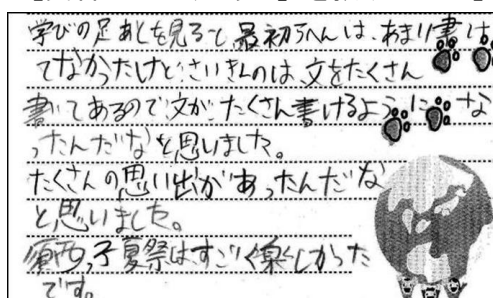 学びの足あとを見ると最初らへんは、あまり書け
てなかったけど、さいきんのは、文をたくさん
書いてあるので文が、たくさん書けるようにな
ったんだなと思いました。
たくさんの思い出があったんだな
と思いました。
須西っ子夏祭はすごく楽しかった
です。